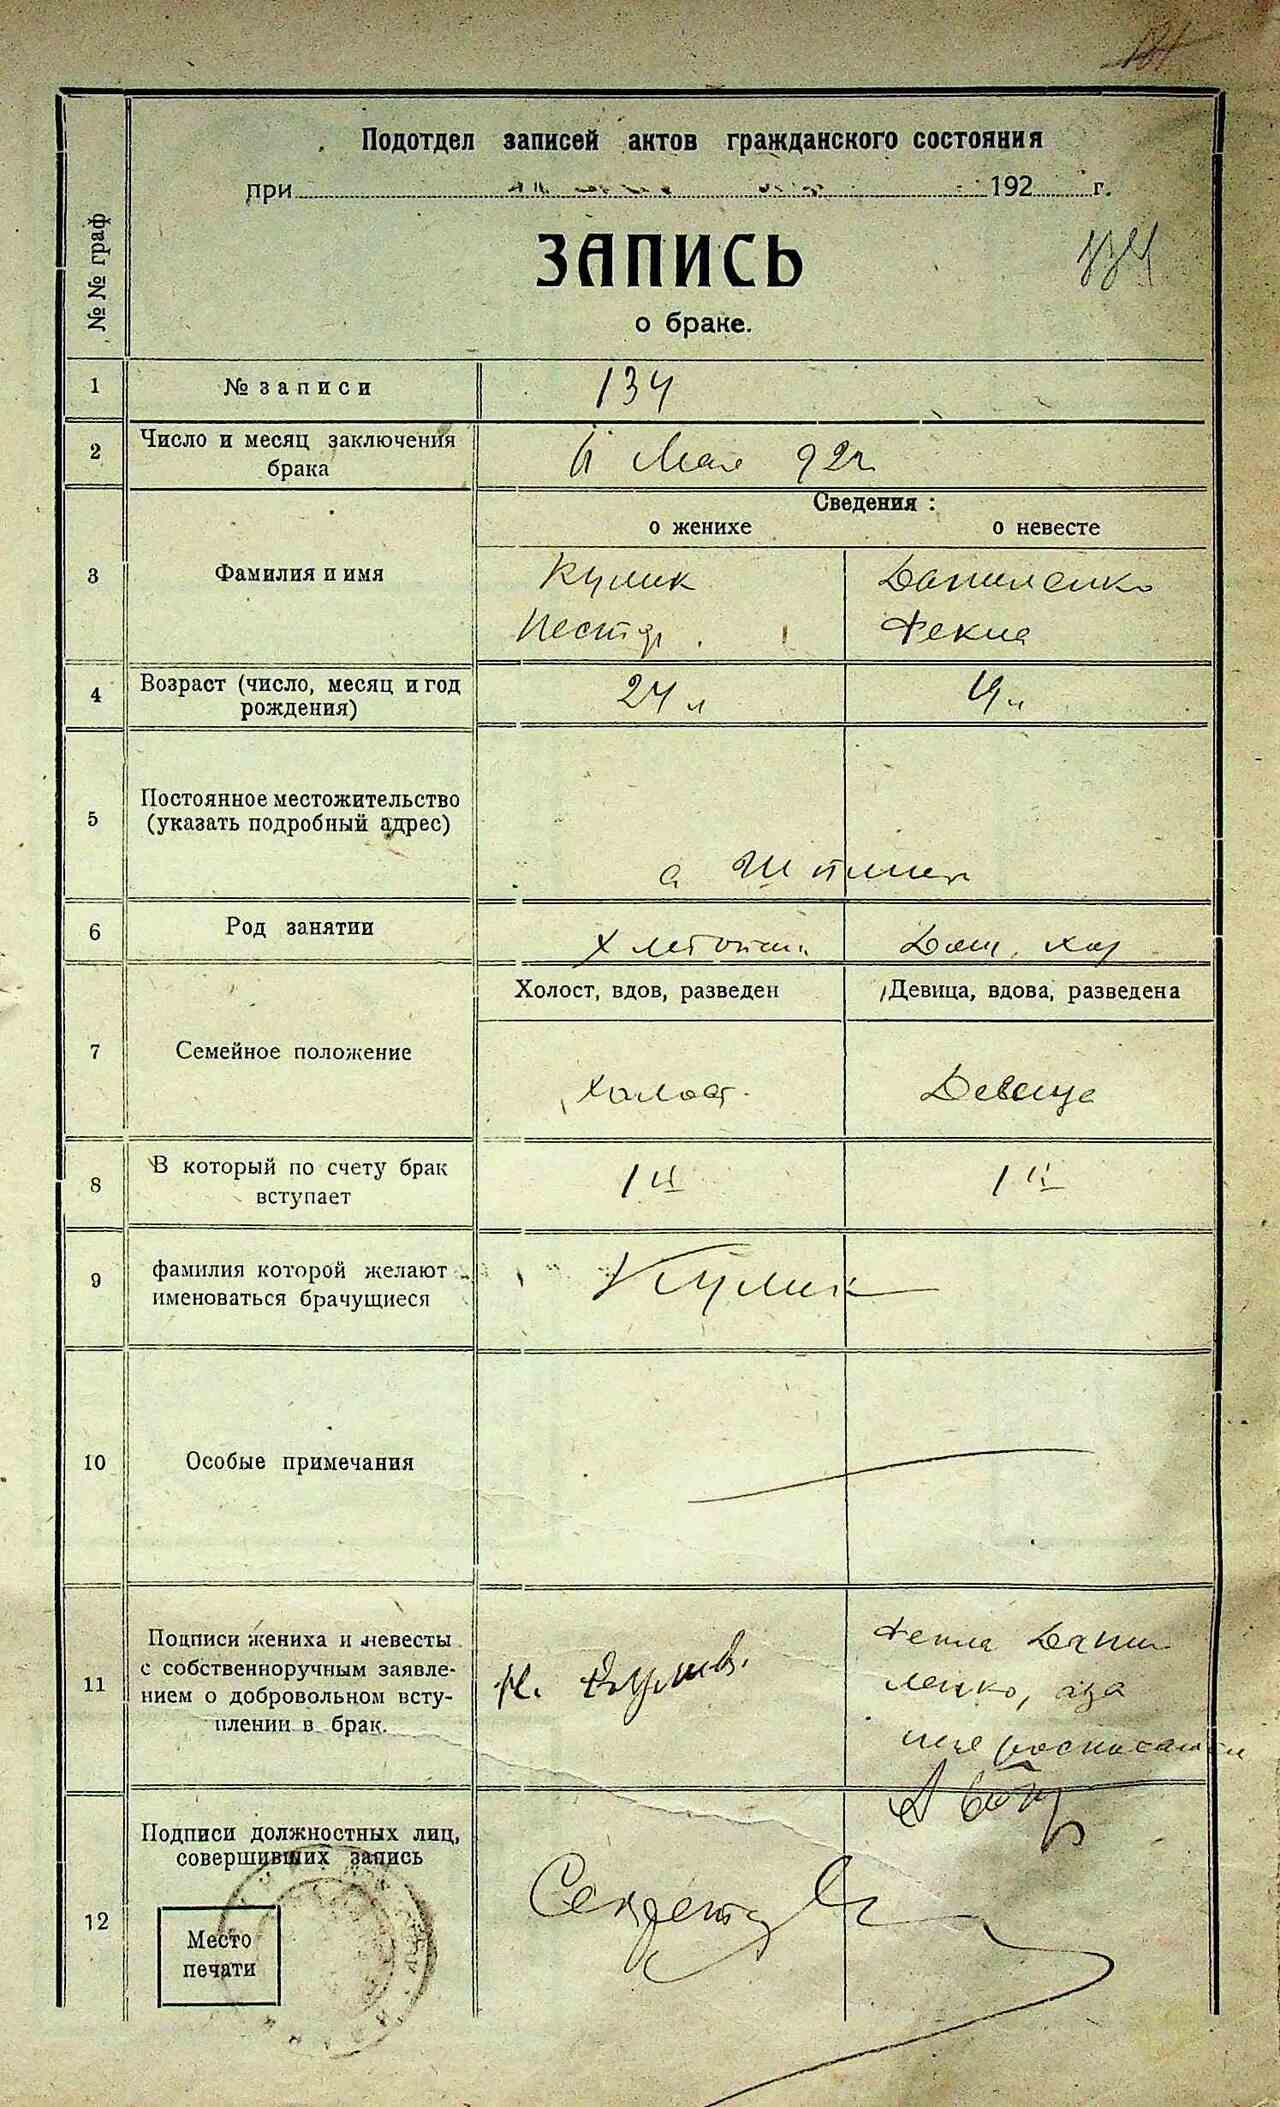 Подотдел записей актов гражданского состояния
при 192 г.
ЗАПИСЬ
о браке.
134
№ № граф
1 № записи 134
2 Число и месяц заключения
брака
Мая 92
Сведения :
о женихе о невесте
3 Фамилия и имя
Кулик Даниленко
Нестор Фекла
4 Возраст (число, месяц и год
рождения)
24 л 19 л
5 Постоянное местожительство
(указать подробный адрес)
с
6 Род занятии
Хлебопаш. Дом. хоз
Холост, вдов, разведен Девица, вдова, разведена
7 Семейное положение
холост. Девица
8 В который по счету брак
вступает
1й 1й
9 фамилия которой желают
именоваться брачущиеся
Кулик
10 Особые примечания
11 Подписи жениха и невесты
с собственноручным заявле-
нием о добровольном всту-
плении в брак.
Н. Кулик. Фекла Дани
ленко, а за
нее росписался
12 Подписи должностных лиц,
совершивших запись
Секретар
Место
печати